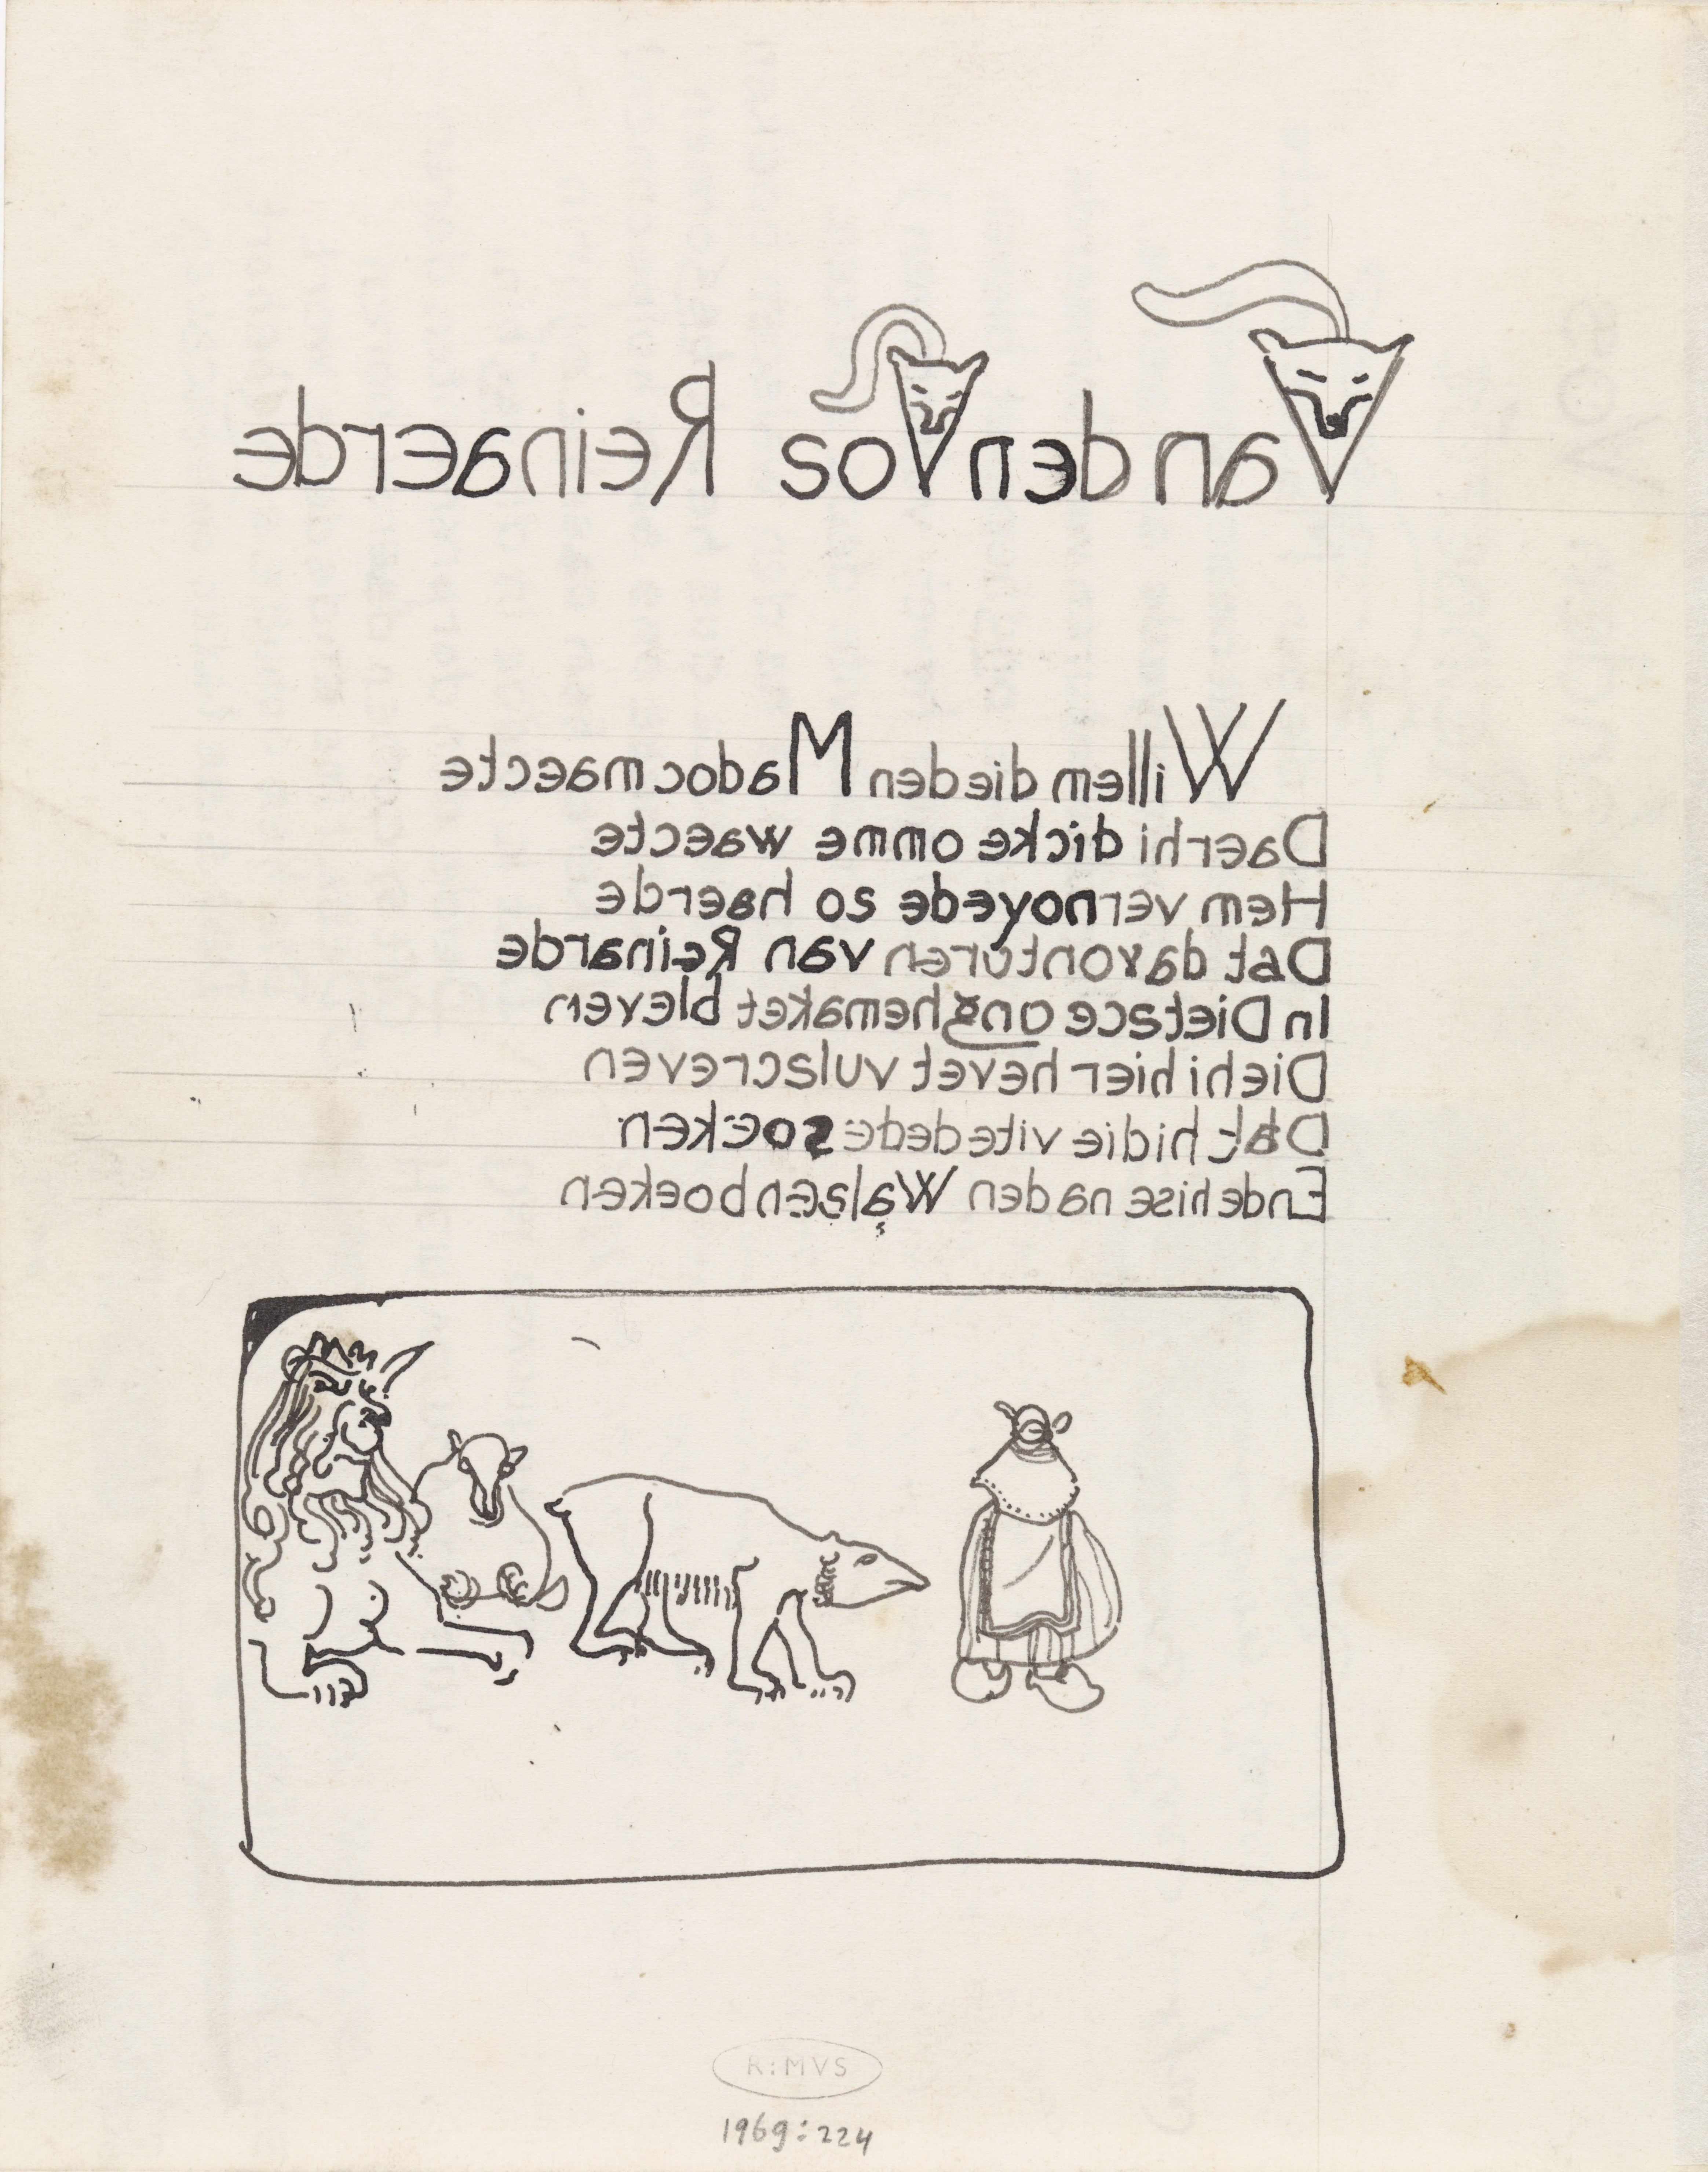 Van den Vos Reinaerde
Willem die den Madoc maecte
Daer hi dicke omme waecte
Hem vernoyede so haerde
Dat davonturen van Reinarde
In Dietsce onghemaket bleven
Die hi hier hevet vulscreven
Dat hi die vite dede soeken
Ende hise na den Walscen boeken
R:MVS
1969:224